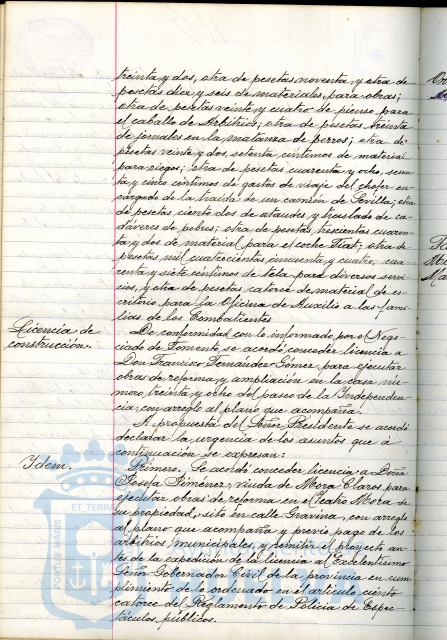 treinta y dos, otra de pesetas noventa, y otra de
pesetas diez y seis de materiales para obras;
otra de pesetas veinte y cuatro de pienso para
el caballo de Arbitrios; otra de pesetas treinta
de jornales en la matanza de perros; otra de
pesetas veinte y dos, setenta céntimos de material
para riegos; otra de pesetas cuarenta y ocho, sesen-
ta y cinco céntimos de gastos de viaje del chofer en-
cargado de la traida de un camión de Sevilla; otra
de pesetas ciento dos de ataudes y traslado de ca-
dáveres de pobres; otra de pesetas trescientas cuaren-
ta y dos de material para el coche Fiat; otra de
pesetas mil cuatrocientas cincuenta y cuatro, cua-
renta y siete céntimos de tela para diversos servi-
cios, y otra de pesetas catorce de material de es-
critorio para la Oficina de Auxilio a las fami-
lias de los Combatientes.
Licencia de
construcción.
De conformidad con lo informado por el Nego-
ciado de Fomento, se acordó conceder licencia a
Don Francisco Fernández Gómez para ejecutar
obras de reforma y ampliación en la casa nú-
mero treinta y ocho del paseo de la Independen-
cia, con arreglo al plano que acompaña.
A propuesta del Señor Presidente se acordó
declarar la urgencia de los asuntos que a
continuación se expresan:
Ydem.
Primero. Se acordó conceder licencia a Doña
Josefa Jiménez, viuda de Mora Claros para
ejecutar obras de reforma en el Teatro Mora de
su propiedad, sito en calle Gravina, con arreglo
al plano que acompaña y previo pago de los
arbitrios municipales y remitir el proyecto an-
tes de la expedición de la licencia al Excelentísimo
Señor Gobernador Civil de la provincia en cum-
plimiento de lo ordenado en el artículo ciento
catorce del Reglamento de Policia de Espec-
táculos públicos.
PORTUS MARIS
ET TERRAE